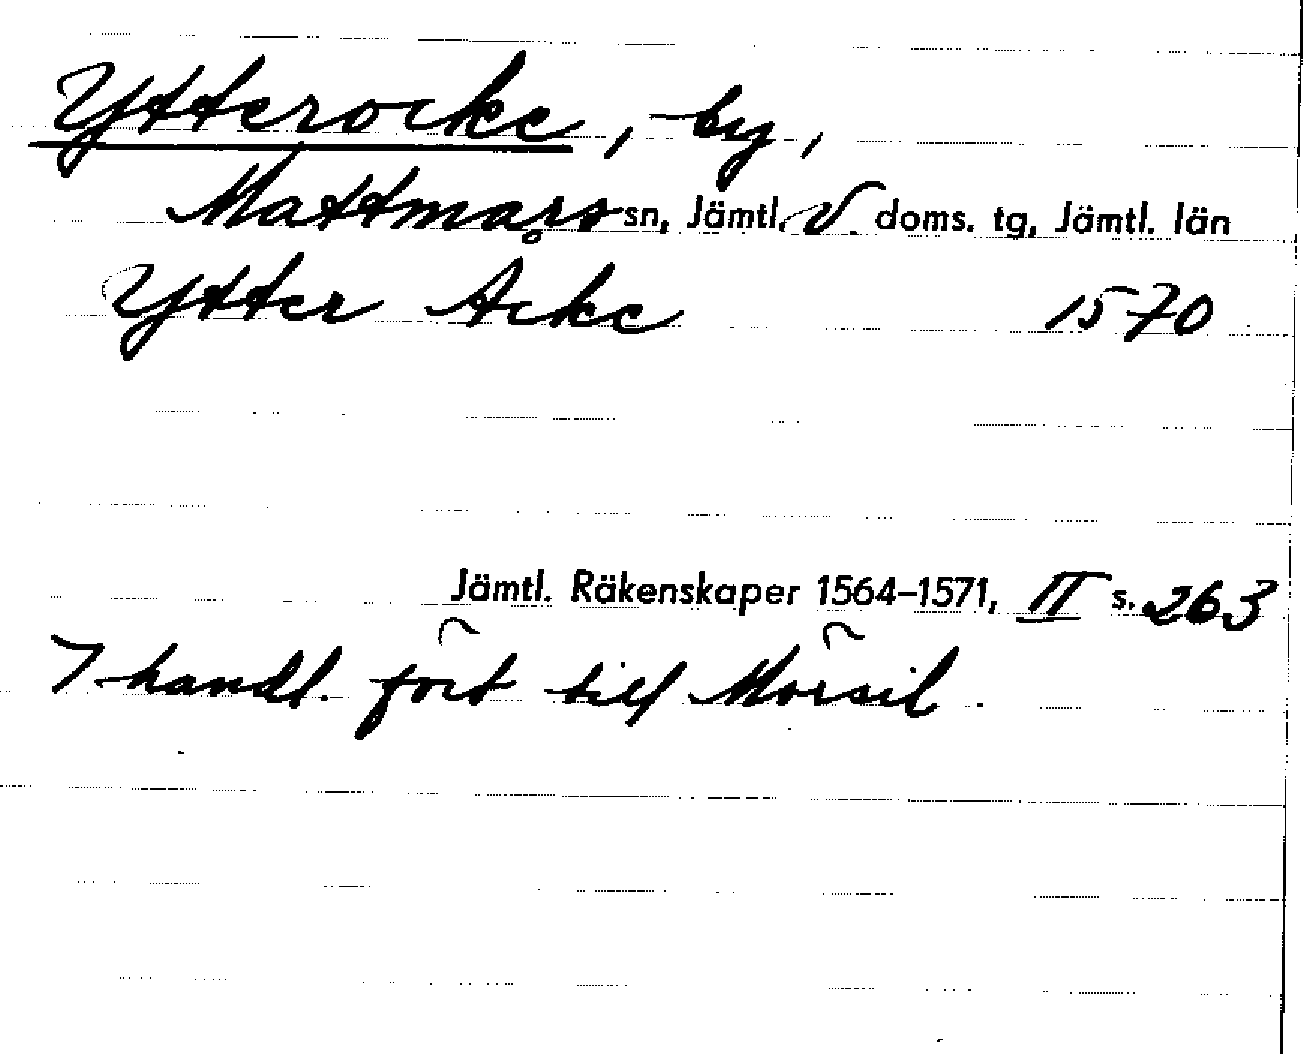 Ytterocke, by,
Mattmars sn, Jämtl. V. doms. tg, Jämtl. län
Ytter Acke 1570
Jämtl. Räkenskaper 1564–1571, II s. 263
I handl. fört till Mörsil.